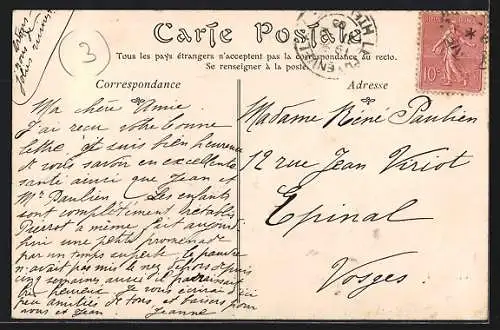 Carte Postale
Tous les pays étrangers n'acceptent pas la correspondance au recto.
Se renseigner à la poste.
Correspondance
Adresse
3
10
Ma chère Amie
J'ai reçu votre bonne
lettre et suis bien heureuse
de vous savoir en excellente
santé ainsi que Jean et
Mr Paulien Les enfants
sont complètement rétablis
Pierrot a même fait aujourd
hui une petite promenade
par un temps superbe le pauvre
n'avait pas mis le nez dehors depuis
cinq semaines aussi il
Je vous écrirai d'ici
peu amitiés de tous, et baisers pour
vous et Jean Jeanne
Madame René Paulien
12 rue Jean Viriot
Epinal
Vosges